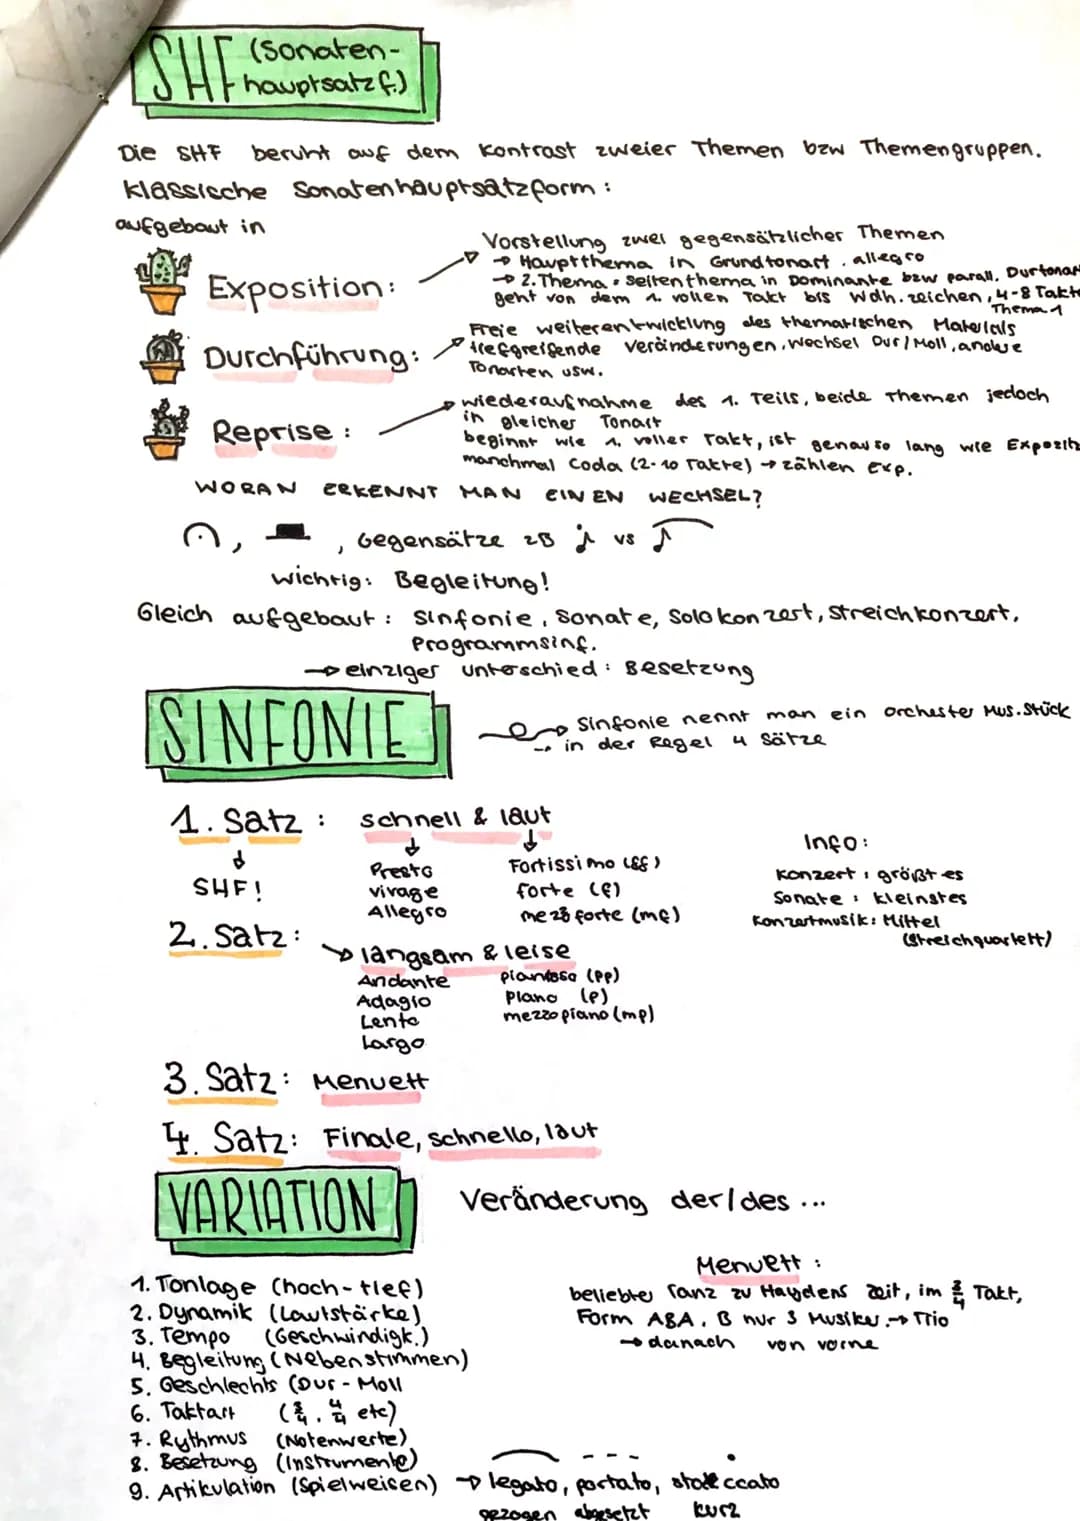 SHF (Sonaten-
hauptsatzf.)
Die SHF beruht auf dem Kontrast zweier Themen bzw Themengruppen.
klassische Sonatenhauptsatzform:
aufgebaut in
Exposition:
Vorstellung zwei gegensätzlicher Themen
→ Hauptthema in Grundtonart. allegro
→ 2. Thema = Seitenthema in Dominante bzw parall. Durtonar
geht von dem 1. vollen Takt bis Wdh. zeichen, 4-8 Takt
Thema 1
Durchführung:
Freie weiterentwicklung des thematischen Materials
tiefgreifende Veränderungen, Wechsel Dur/Moll, andere
Tonarten usw.
Reprise:
wiederaufnahme des 1. Teils, beide Themen jedoch
in gleicher Tonart
beginnt wie 1. voller Takt, ist genauso lang wie Expositi
manchmal Coda (2-10 Takte) → zählen Exp.
WORAN ERKENNT MAN EINEN WECHSEL?
, , Gegensätze zB ♪ vs ♪
wichtig: Begleitung!
Gleich aufgebaut: Sinfonie, Sonate, Solokonzert, Streichkonzert,
Programmsinf.
→ einziger unterschied: Besetzung
SINFONIE
→ Sinfonie nennt man ein orchester Mus. Stück
→ in der Regel 4 Sätze
1. Satz: schnell & laut
↓ ↓ ↓
SHF!
Presto Fortissimo (ff)
virage forte (f)
Allegro mezzo forte (mf)
Info:
Konzert: größtes
Sonate: kleinstes
Konzertmusik: Mittel
(Streichquartett)
2. Satz: → langsam & leise
Andante (pp)
Adagio Piano (p)
Lento mezzo piano (mp)
Largo
3. Satz: Menuett
4. Satz: Finale, schnello, laut
VARIATION Veränderung der/des ...
1. Tonlage (hoch-tief)
2. Dynamik (Lautstärke)
3. Tempo (Geschwindigk.)
4. Begleitung (Nebenstimmen)
5. Geschlechts (Dur-Moll
6. Taktart (3/4, 4/4 etc)
7. Rythmus (Notenwerte)
8. Besetzung (Instrumente)
9. Artikulation (Spielweisen) → legato, portato, staccato
gezogen abgesetzt kurz
Menuett:
beliebter Tanz zu Haydens Zeit, im 3/4 Takt,
Form ABA. B nur 3 Musiker. → Trio
→ danach von vorne